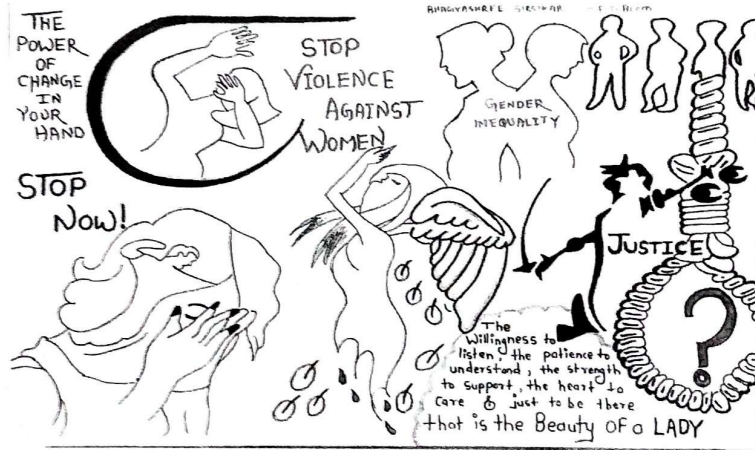 THE
POWER
OF
CHANGE
IN
YOUR
HAND
STOP
VIOLENCE
AGAINST
WOMEN
BHAGYASHREE
GENDER
INEQUALITY
STOP
NOW!
JUSTICE
?
The
Willingness to
listen, the patience to
understand, the strength
to support, the heart to
care & just to be there
that is the Beauty OF a LADY